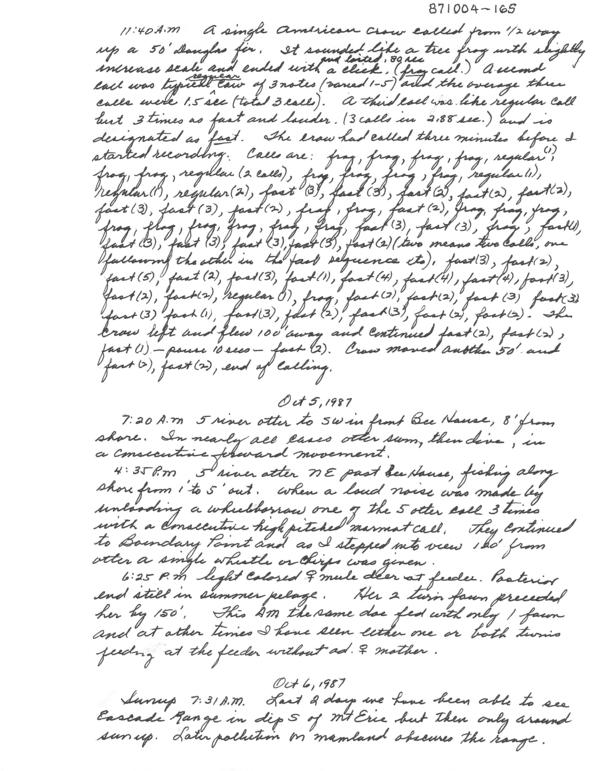 871004-165
11:40 A.M A single American Crow called from 1/2 way
up a 50' Douglas fir. It sounded like a tree frog with slightly
and lasted .80 sec
increase scale and ended with a click. (frog call.) A second
regular
call was typical caw of 3 notes (varied 1-5) and the average three
calls were 1.5 sec (total 3 calls). A third call was like regular call
but 3 times as fast and louder. (3 calls in 2.88 sec.) and is
designated as fast. The crow had called three minutes before I
started recording. Calls are: frog, frog, frog, frog, regular (1),
frog, frog, regular (2 calls), frog, frog, frog, frog, regular (1),
regular (1), regular (2), fast (3), fast (3), fast (2), fast (2), fast (2),
fast (3), fast (3), fast (2), frog, frog, fast (2), frog, frog, frog,
frog, frog, frog, frog, frog, frog, fast (3), fast (3), frog, fast (1),
fast (3), fast (3), fast (3), fast (3), fast (2) (two means two calls, one
following the other in the fast sequence etc), fast (3), fast (2),
fast (5), fast (2), fast (3), fast (1), fast (4), fast (4), fast (4), fast (3),
fast (2), fast (2), regular (1), frog, fast (2), fast (2), fast (3) fast (3)
fast (3) fast (1), fast (3), fast (2), fast (3), fast (2), fast (2). The
crow left and flew 100' away and continued fast (2), fast (2),
fast (1) - pause 10 secs - fast (2). Crow moved another 50' and
fast (2), fast (2), end of calling.
Oct 5, 1987
7:20 A.M 5 river otter to SW in front Bee House, 8' from
shore. In nearly all cases otter swim, then dive, in
a consecutive forward movement.
4:35 P.M 5 river otter NE past Bee House, fishing along
shore from 1' to 5' out. When a loud noise was made by
unloading a wheelbarrow one of the 5 otter call 3 times
with a consecutive high pitched marmot call. They continued
to Boundary Point and as I stepped into view 100' from
otter a single whistle or chirps was given.
6:25 P.M. light colored ♀ mule deer at feeder. Posterior
end still in summer pelage. Her 2 twin fawn preceded
her by 150'. This AM the same doe fed with only 1 fawn
and at other times I have seen either one or both twins
feeding at the feeder without ad. ♀ mother.
Oct 6, 1987
Sunup 7:31 A.M. Last 2 days we have been able to see
Cascade Range in dip S of Mt Erie but then only around
sunup. Later pollution on mainland obscures the range.